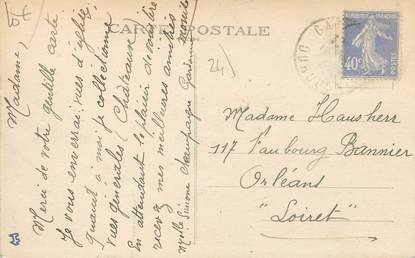 CARTE POSTALE
Madame,
Merci de votre gentille carte
Je vous enverrai vues d'église
quant à moi je collectionne
vues générales (Châteaux)
En attendant le plaisir de vous lire
recevez mes meilleures amitiés
Mlle Simone Champagne
24)
RÉPUBLIQUE FRANÇAISE
40c
POSTES
Madame Hausherr
117 Faubourg Bannier
Orléans
"Loiret"